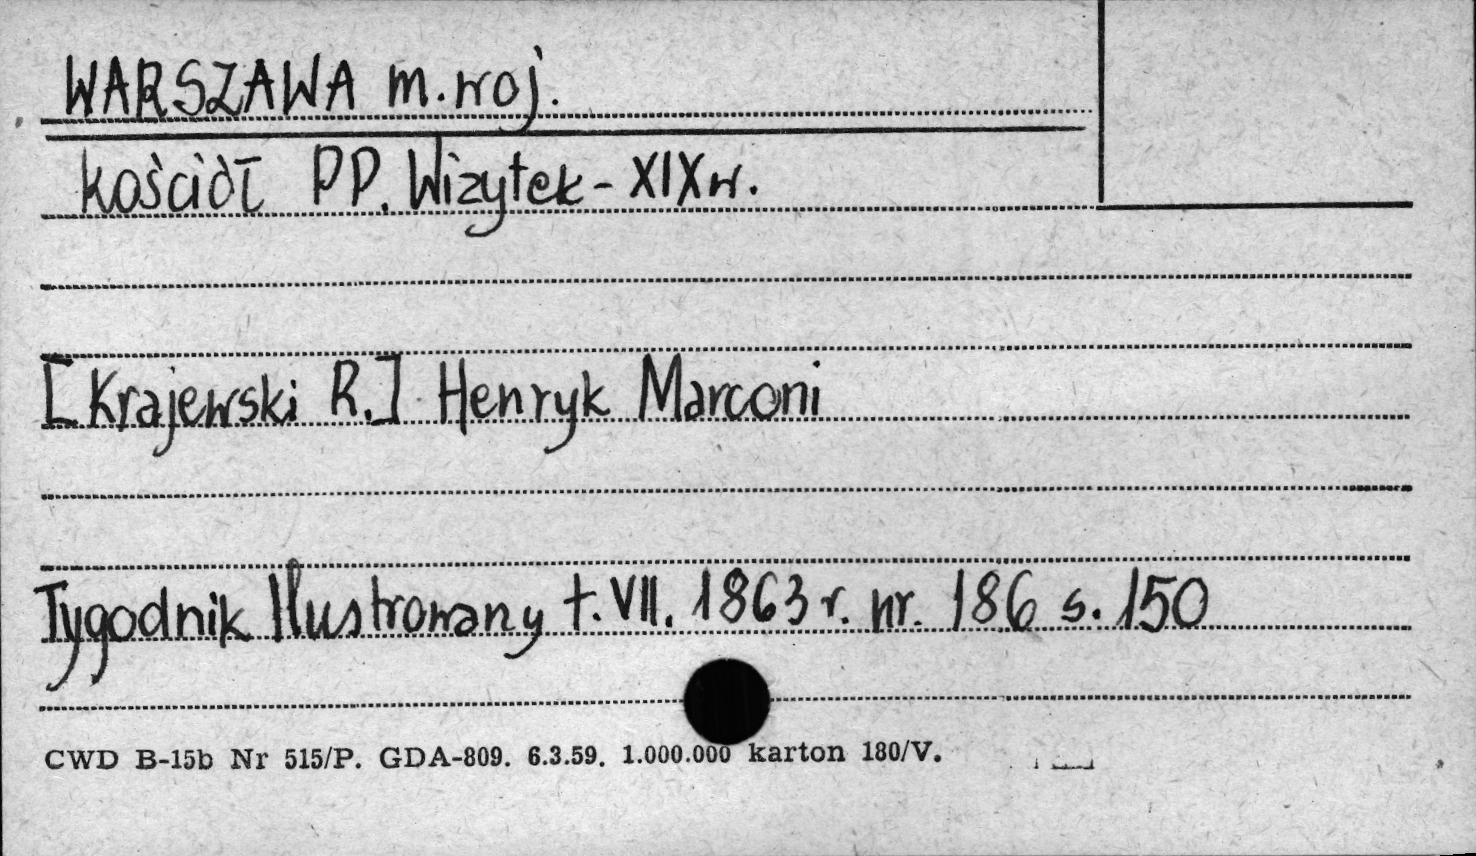 WARSZAWA m. woj.
kościół PP. Wizytek - XIX w.
[Krajewski R.] Henryk Marconi
Tygodnik Ilustrowany t. VII. 1863 r. nr. 186 s. 150
CWD B-15b Nr 515/P. GDA-809. 6.3.59. 1.000.000 karton 180/V.